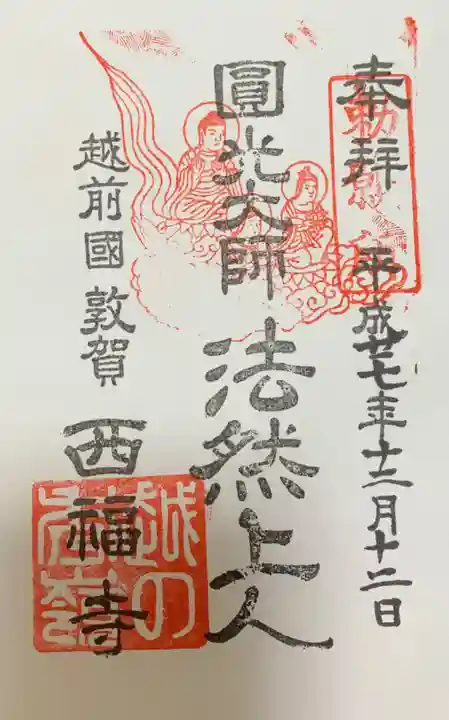 奉拜　平成廿七年十二月十二日
圓光大師　法然上人
越前國敦賀　西福寺
勅願
越の